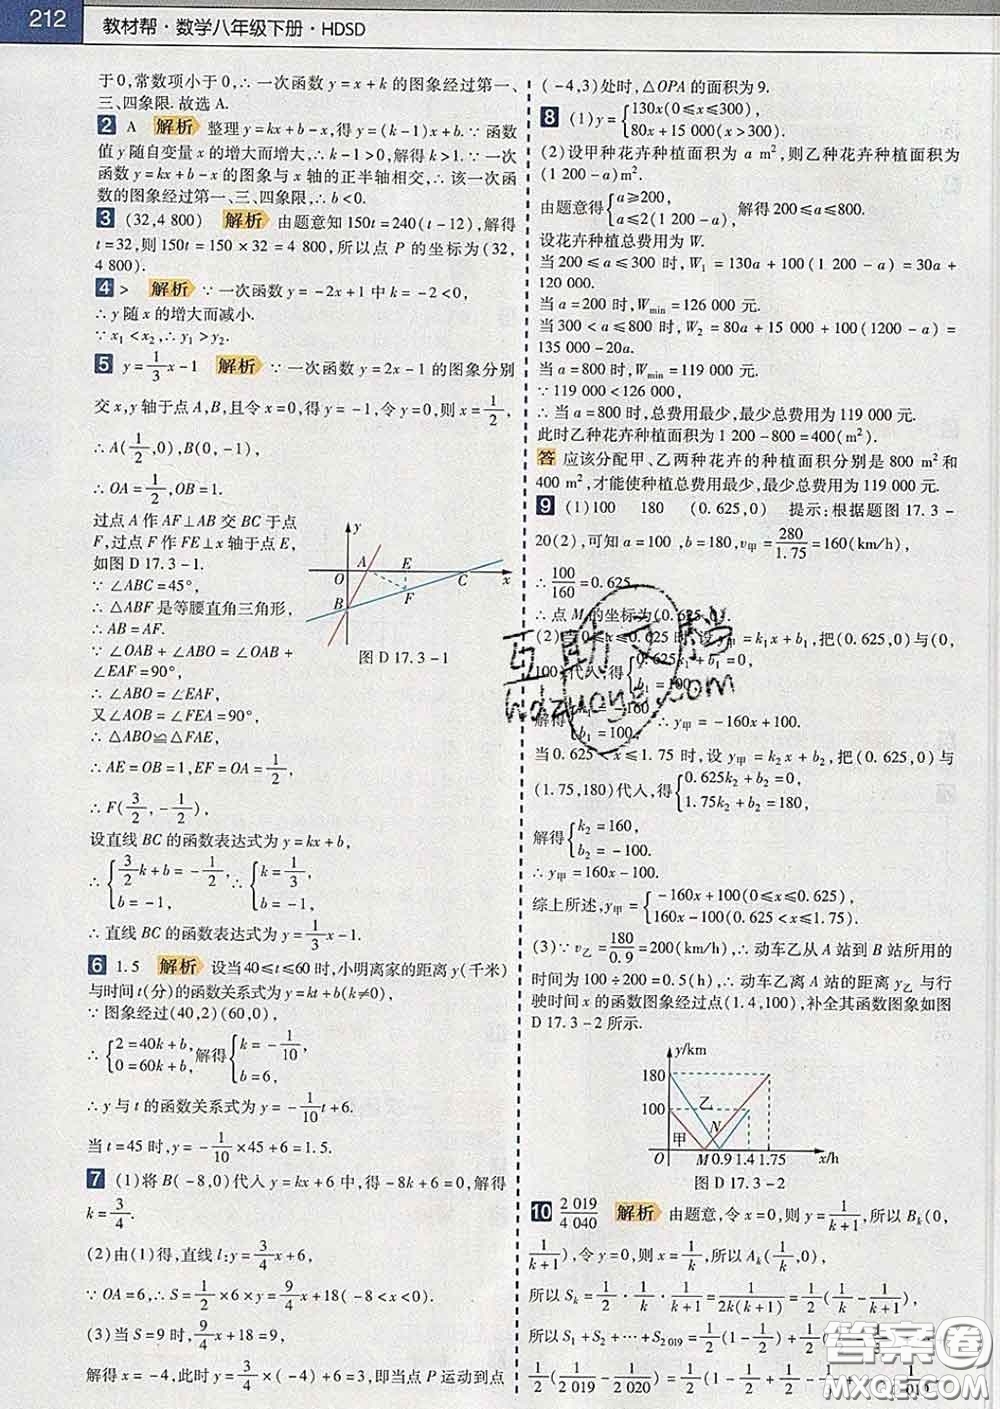 212 教材帮·数学八年级下册·HDSD
于0,常数项小于0,∴一次函数y=x+k的图象经过第一、
三、四象限.故选A.
2 A 解析 整理y=kx+b-x,得y=(k-1)x+b.∵函数
值y随自变量x的增大而增大,∴k-1>0,解得k>1.∵一次
函数y=kx+b-x的图象与x轴的正半轴相交,∴该一次函
数的图象经过第一、三、四象限,∴b<0.
3 (32,4 800) 解析 由题意知150t=240(t-12),解得
t=32,则150t=150×32=4 800,所以点P的坐标为(32,
4 800).
4 > 解析 ∵一次函数y=-2x+1中k=-2<0,
∴y随x的增大而减小.
∵x₁<x₂,∴y₁>y₂.
5 y=1/3x-1 解析 ∵一次函数y=2x-1的图象分别
交x,y轴于点A,B,且令x=0,得y=-1,令y=0,则x=1/2,
∴A(1/2,0),B(0,-1),
∴OA=1/2,OB=1.
过点A作AF⊥AB交BC于点
F,过点F作FE⊥x轴于点E,
如图D 17.3-1.
∵∠ABC=45°,
∴△ABF是等腰直角三角形,
∴AB=AF.
∵∠OAB+∠ABO=∠OAB+
∠EAF=90°,
∴∠ABO=∠EAF,
又∠AOB=∠FEA=90°,
∴△ABO≌△FAE,
∴AE=OB=1,EF=OA=1/2,
y
O A E C x
B F
图D 17.3-1
∴F(3/2,-1/2),
设直线BC的函数表达式为y=kx+b,
∴{3/2k+b=-1/2, b=-1, ∴{k=1/3, b=-1,
∴直线BC的函数表达式为y=1/3x-1.
6 1.5 解析 设当40≤t≤60时,小明离家的距离y(千米)
与时间t(分)的函数关系式为y=kt+b(k≠0),
∵图象经过(40,2)(60,0),
∴{2=40k+b, 0=60k+b, 解得{k=-1/10, b=6,
∴y与t的函数关系式为y=-1/10t+6.
当t=45时,y=-1/10×45+6=1.5.
7 (1)将B(-8,0)代入y=kx+6中,得-8k+6=0,解得
k=3/4.
(2)由(1)得,直线l:y=3/4x+6,
∵OA=6,∴S=1/2×6×y=9/4x+18(-8<x<0).
(3)当S=9时,9/4x+18=9,
解得x=-4,此时y=3/4×(-4)+6=3,即当点P运动到点
(-4,3)处时,△OPA的面积为9.
8 (1)y={130x(0≤x≤300), 80x+15 000(x>300).
(2)设甲种花卉种植面积为a m²,则乙种花卉种植面积为
(1 200-a)m².
由题意得{a≥200, a≤2(1 200-a), 解得200≤a≤800.
设花卉种植总费用为W.
当200≤a≤300时,W₁=130a+100(1 200-a)=30a+
120 000.
当a=200时,Wmin=126 000元.
当300<a≤800时,W₂=80a+15 000+100(1200-a)=
135 000-20a.
当a=800时,Wmin=119 000元.
∵119 000<126 000,
∴当a=800时,总费用最少,最少总费用为119 000元.
此时乙种花卉种植面积为1 200-800=400(m²).
答 应该分配甲、乙两种花卉的种植面积分别是800 m²和
400 m²,才能使种植总费用最少,最少总费用为119 000元.
9 (1)100 180 (0.625,0) 提示:根据题图17.3-
20(2),可知a=100,b=180,v甲=280/1.75=160(km/h),
∴100/160=0.625,
∴点M的坐标为(0.625,0).
(2)当0≤x≤0.625时,设y甲=k₁x+b₁,把(0.625,0)与(0,
100)代入,得{0.625k₁+b₁=0, b₁=100,
解得{k₁=-160, b₁=100, ∴y甲=-160x+100.
当0.625<x≤1.75时,设y甲=k₂x+b₂,把(0.625,0)与
(1.75,180)代入,得{0.625k₂+b₂=0, 1.75k₂+b₂=180,
解得{k₂=160, b₂=-100.
∴y甲=160x-100.
综上所述,y甲={-160x+100(0≤x≤0.625), 160x-100(0.625<x≤1.75).
(3)∵v乙=180/0.9=200(km/h),∴动车乙从A站到B站所用的
时间为100÷200=0.5(h),∴动车乙离A站的距离y乙与行
驶时间x的函数图象经过点(1.4,100),补全其函数图象如图
D 17.3-2所示.
y/km
180
100 乙
甲 N
O M 0.9 1.4 1.75 x/h
图D 17.3-2
10 2 019/4 040 解析 由题意,令x=0,则y=1/(k+1),所以Bₖ(0,
1/(k+1)),令y=0,则x=1/k,所以Aₖ(1/k,0),
所以Sₖ=1/2·1/k·1/(k+1)=1/(2k(k+1))=1/2(1/k-1/(k+1)),
所以S₁+S₂+…+S₂₀₁₉=1/2(1-1/2)+1/2(
1/2(1/2 019-1/2 020)=1/2(1-1/2+1/2-
互助文档
hdzuoye.com
答案圈
MXQE.COM